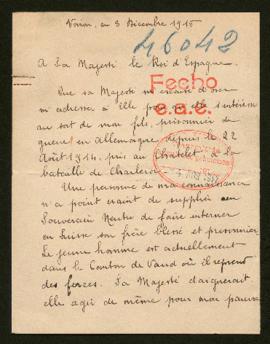 en 3 Décembre 1915
46042
A Sa Majesté le Roi d'Espagne
Fecho
e.a.e.
Que sa Majesté m'excuse d'oser
m'adresser à Elle pour qu'elle s'intéresse
au sort de mon fils, prisonnier de
guerre en Allemagne depuis le 22
Août 1914, pris au Chatelet à la
bataille de Charleroi
Une personne de ma connaissance
n'a point craint de supplier un
Souverain Neutre de faire interner
en Suisse son frère blessé et prisonnier
Le jeune homme est actuellement
dans le Canton de Vaud où il reprend
des forces. Sa Majesté daignerait
elle agir de même pour mon pauvre